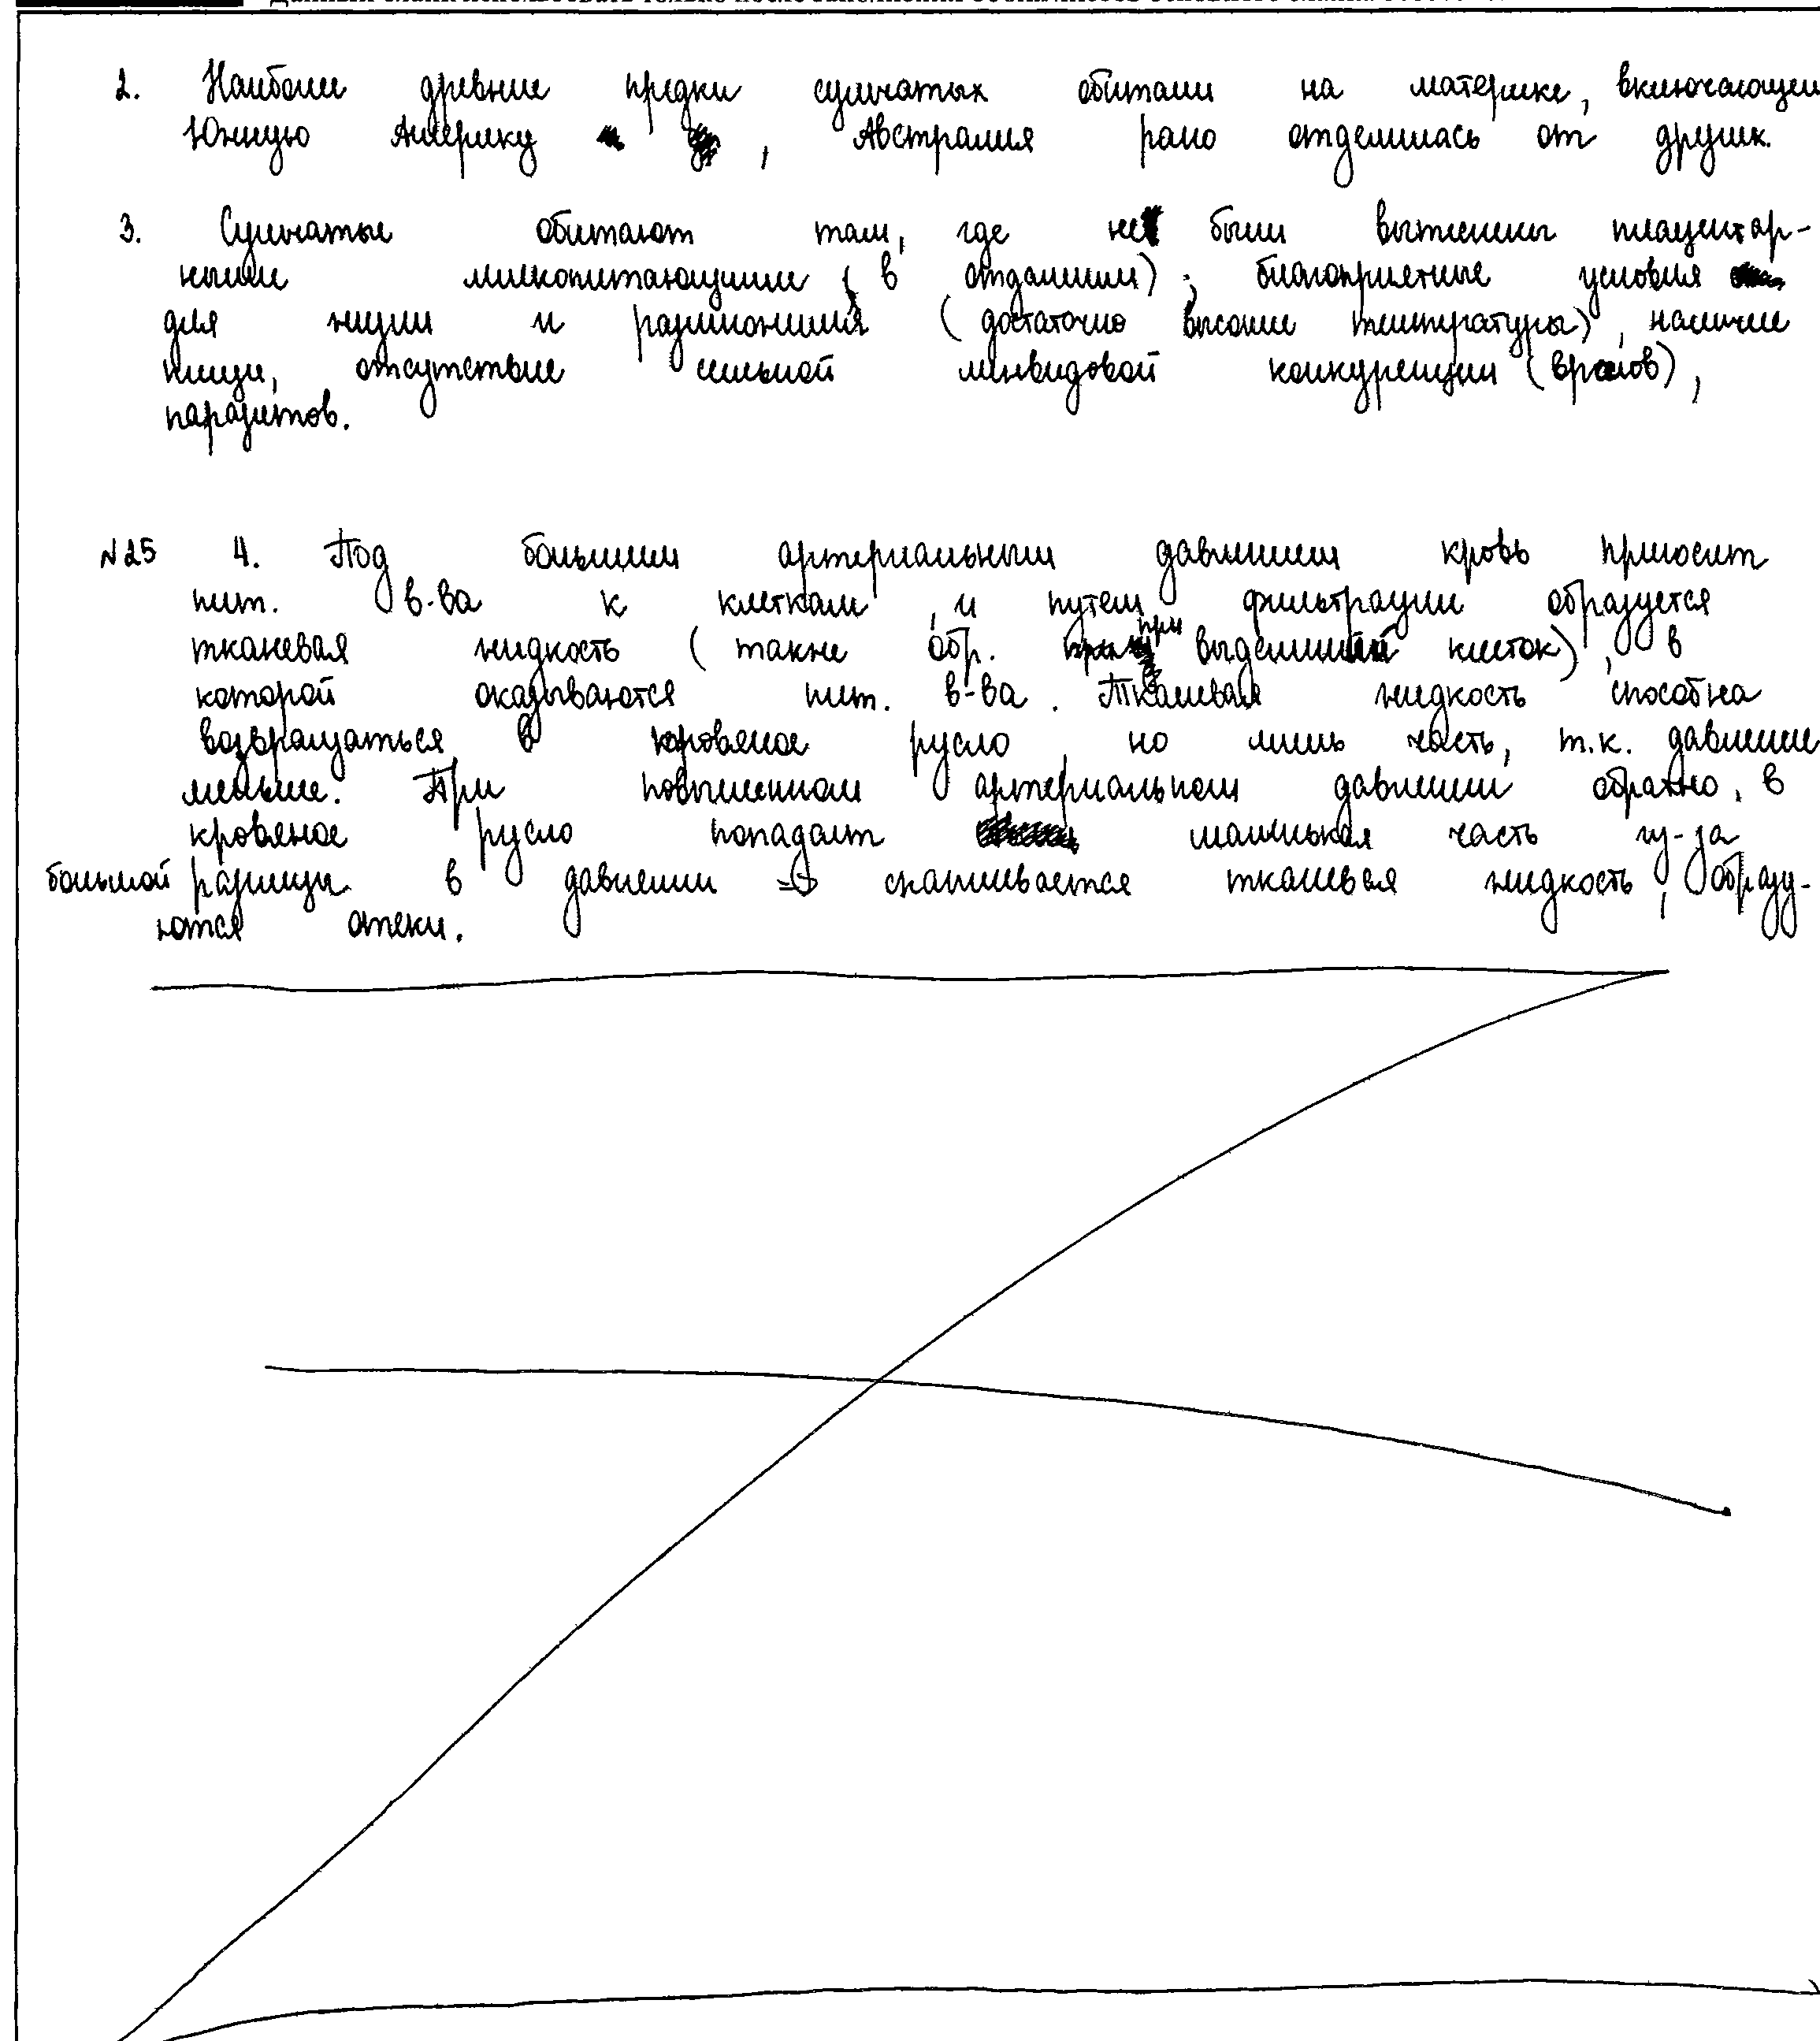 2. Наиболее древние предки сумчатых обитали на материке, включающем
Южную Америку , Австралия рано отделилась от других.
3. Сумчатые обитают там, где не были вытеснены плацентар-
ными млекопитающими (в отдалении), благоприятные условия
для жизни и размножения (достаточно высокие температуры), наличие
пищи, отсутствие сильной межвидовой конкуренции (врагов),
паразитов.
№25 4. Под большим артериальным давлением кровь приносит
пит. в-ва к клеткам, и путем фильтрации образуется
тканевая жидкость (также обр. при выделении клеток), в
которой оказываются пит. в-ва. Тканевая жидкость способна
возвращаться в кровяное русло, но лишь часть, т.к. давление
меньше. При повышенном артериальном давлении обратно, в
кровяное русло попадает маленькая часть из-за
большой разницы в давлении => скапливается тканевая жидкость, образу-
ются отеки.